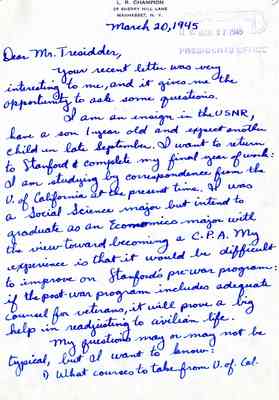 L. R. CHAMPION
29 SHERRY HILL LANE
MANHASSET, N. Y.
March 20, 1945
27 1945
PRESIDENT'S OFFICE
Dear Mr. Tresidder,
Your recent letter was very
interesting to me, and it gives me the
opportunity to ask some questions.
I am an ensign in the USNR,
have a son 1 year old and expect another
child in late September. I want to return
to Stanford & complete my final year of work:
I am studying by correspondence from the
U. of California at the present time. I was
a Social Science major but intend to
graduate as an Economics major with
the view toward becoming a C.P.A. My
experience is that it would be difficult
to improve on Stanford's pre-war program:
if the post-war program includes adequate
counsel for veterans, it will prove a big
help in readjusting to civilian life.
My questions may or may not be
typical, but I want to know:
1) What courses to take from U. of Cal.